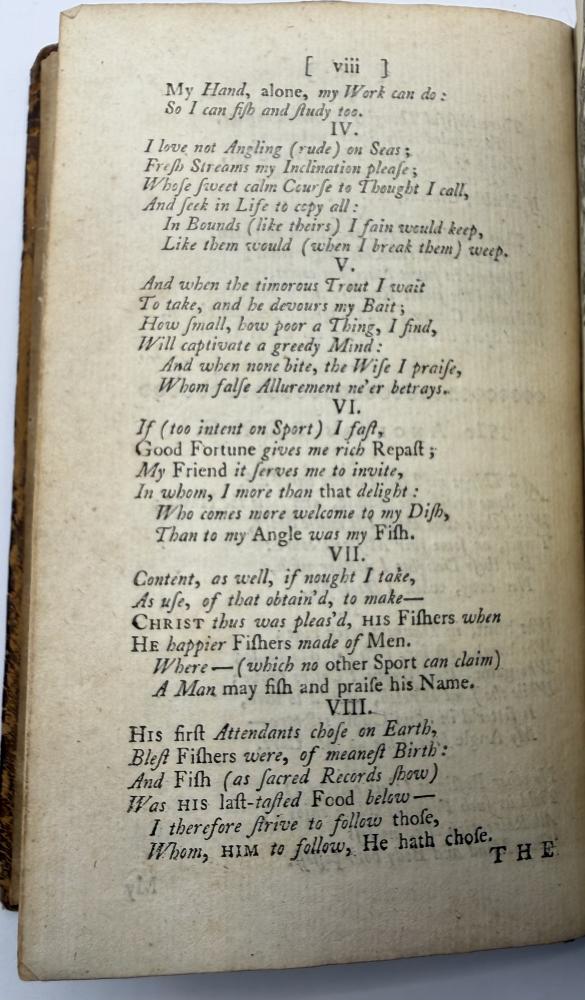 [ viii ]
My Hand, alone, my Work can do:
So I can fiſh and ſtudy too.
IV.
I love not Angling (rude) on Seas;
Freſh Streams my Inclination pleaſe;
Whoſe ſweet calm Courſe to Thought I call,
And ſeek in Life to copy all:
In Bounds (like theirs) I fain would keep,
Like them would (when I break them) weep.
V.
And when the timorous Trout I wait
To take, and he devours my Bait;
How ſmall, how poor a Thing, I find,
Will captivate a greedy Mind:
And when none bite, the Wiſe I praiſe,
Whom falſe Allurement ne'er betrays.
VI.
If (too intent on Sport) I faſt,
Good Fortune gives me rich Repaſt;
My Friend it ſerves me to invite,
In whom, I more than that delight:
Who comes more welcome to my Diſh,
Than to my Angle was my Fiſh.
VII.
Content, as well, if nought I take,
As uſe, of that obtain'd, to make—
CHRIST thus was pleas'd, HIS Fiſhers when
HE happier Fiſhers made of Men.
Where—(which no other Sport can claim)
A Man may fiſh and praiſe his Name.
VIII.
HIS firſt Attendants choſe on Earth,
Bleſt Fiſhers were, of meaneſt Birth:
And Fiſh (as ſacred Records ſhow)
Was HIS laſt-taſted Food below—
I therefore ſtrive to follow thoſe,
Whom, HIM to follow, He hath choſe.
THE